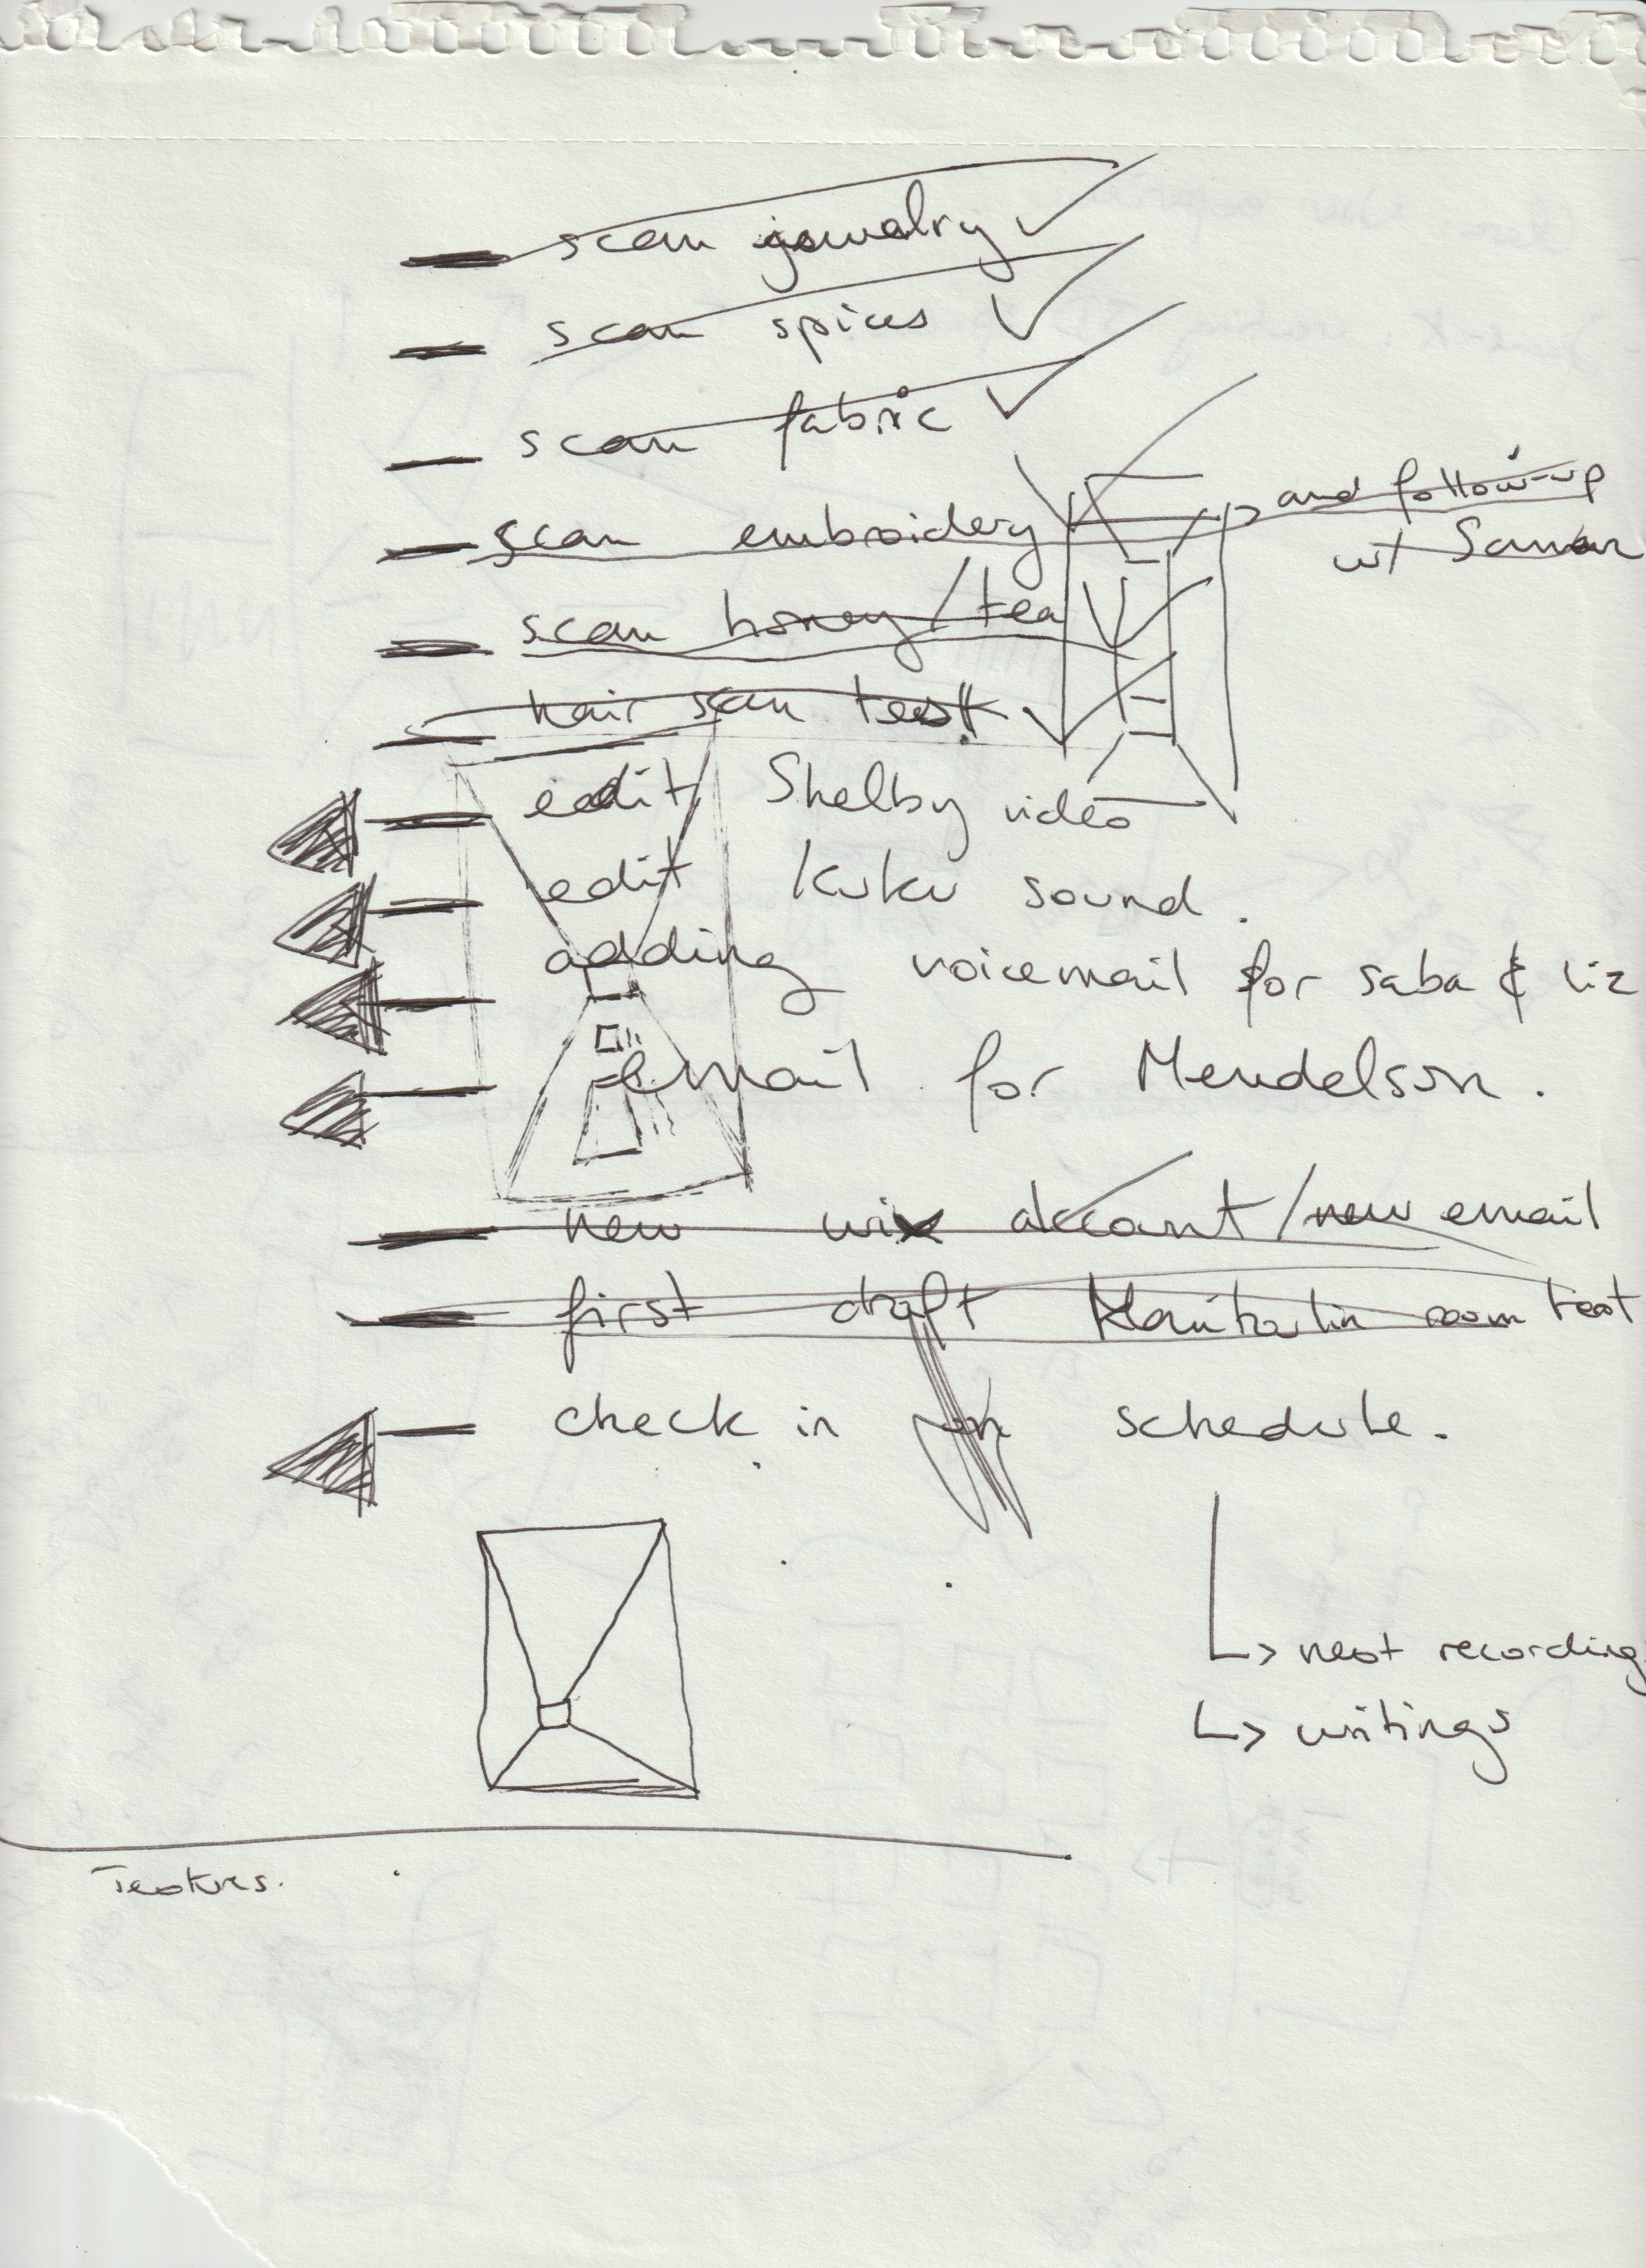 scan jewelry
scan spices
scan fabric
scan embroidery and follow-up
w/
scan honey/tea
hair scan test
edit Shelby video
edit Kuku sound.
adding voicemail for saba & liz
email for Mendelson.
new wix account/new email
first draft room
check in on schedule.
↳ next recording
↳ writings